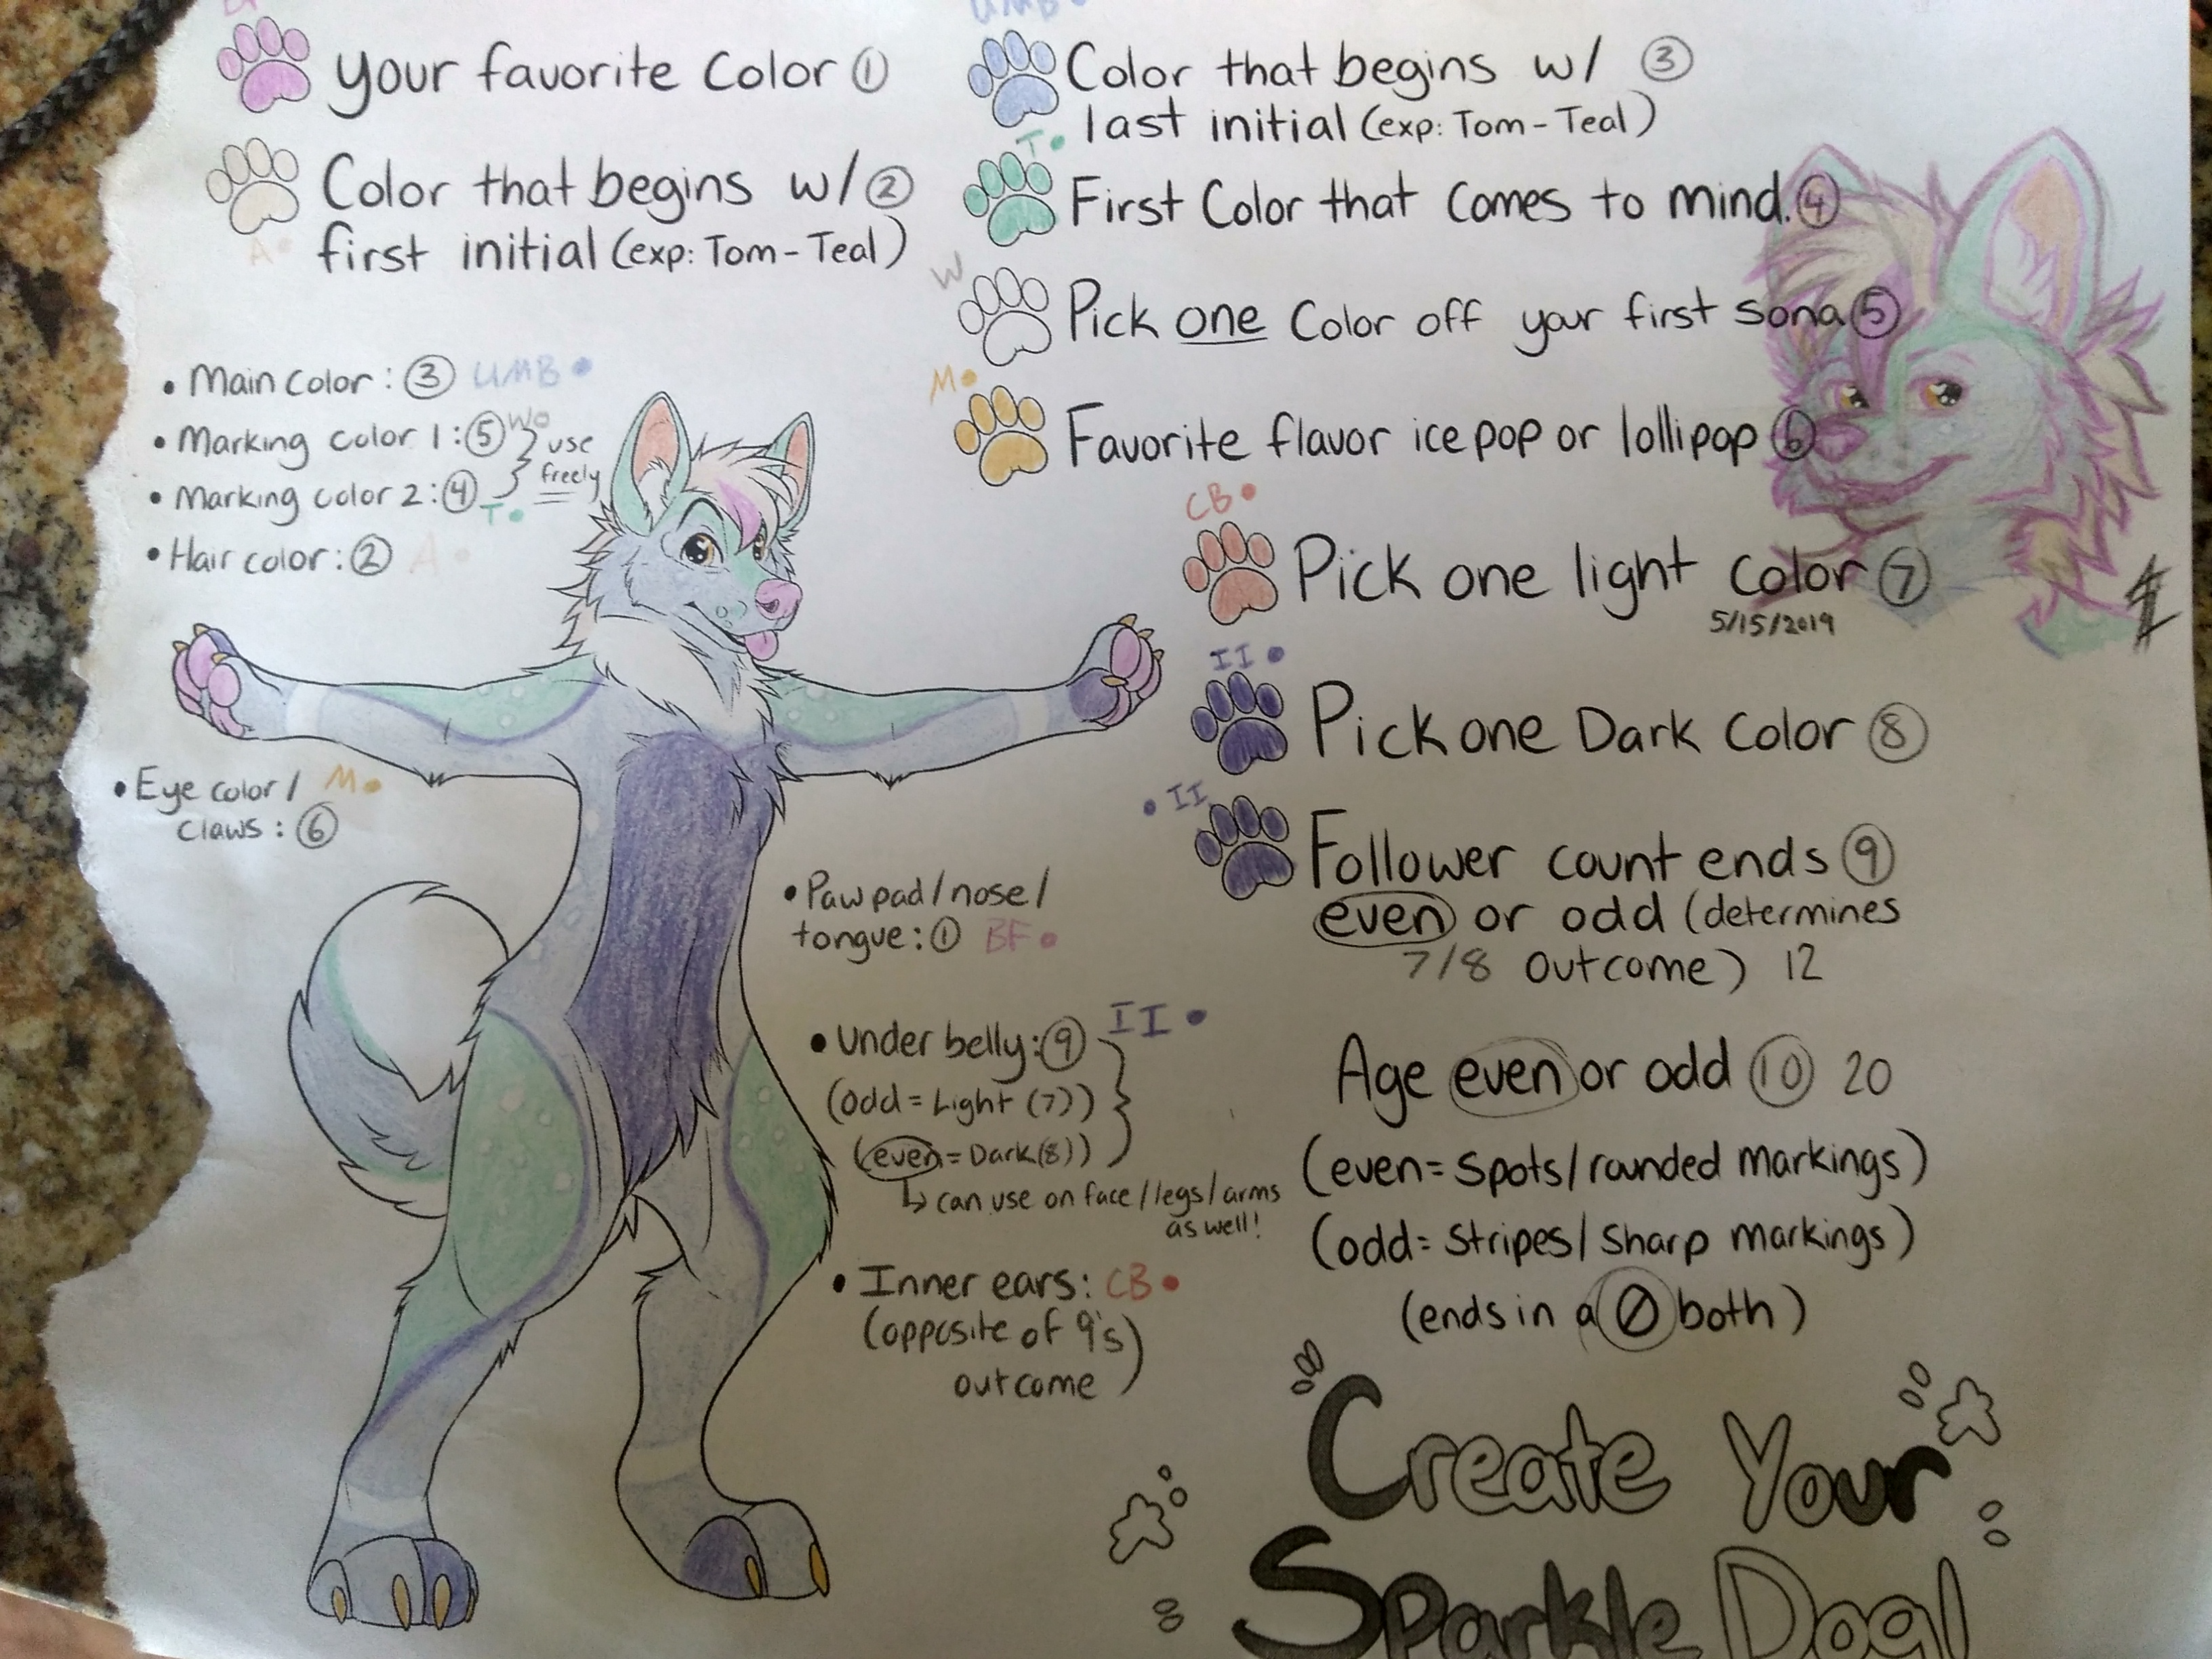 BF
your favorite Color ①
Color that begins w/ ②
first initial (exp: Tom-Teal)
A
UMB
Color that begins w/ ③
last initial (exp: Tom-Teal)
T
First Color that comes to mind. ④
W
Pick one Color off your first sona ⑤
M
Favorite flavor ice pop or lollipop ⑥
CB
Pick one light color ⑦
5/15/2019
II
Pick one Dark Color ⑧
II
Follower count ends ⑨
even or odd (determines
7/8 outcome) 12
Age even or odd ⑩ 20
(even= spots/rounded markings)
(odd= stripes/sharp markings)
(ends in a 0 both)
• Main color: ③ UMB
• Marking color 1: ⑤ W
• Marking color 2: ④ T
use
freely
• Hair color: ② A
• Eye color/ M
claws: ⑥
• Paw pad/nose/
tongue: ① BF
• Under belly: ⑨ II
(odd= Light (7))
(even= Dark(8))
↳ can use on face/legs/arms
as well!
• Inner ears: CB
(opposite of 9's
outcome)
Create Your
Sparkle Dog!